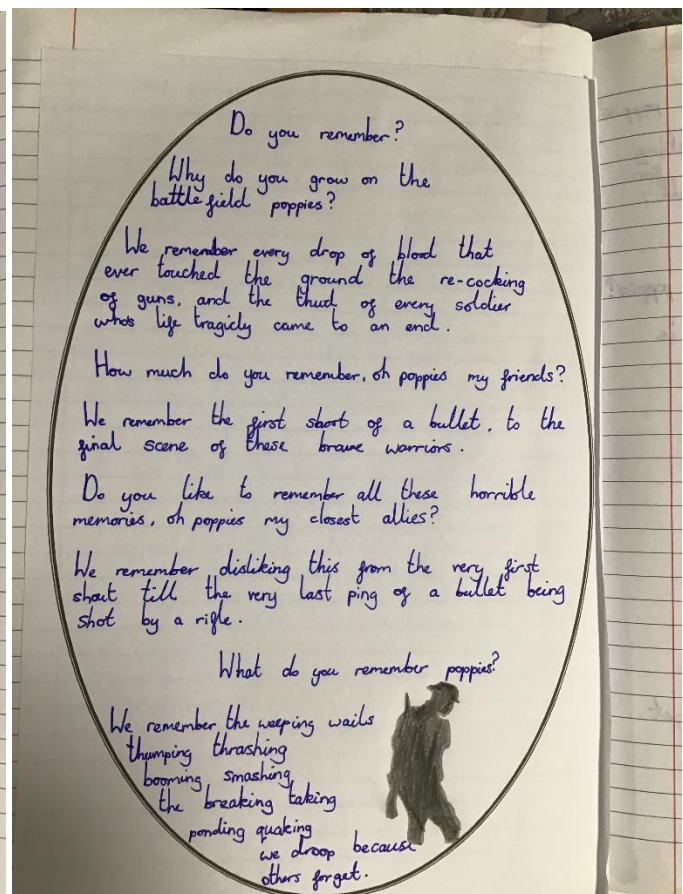 Do you remember?
Why do you grow on the
battlefield poppies?
We remember every drop of blood that
ever touched the ground the re-cocking
of guns, and the thud of every soldier
who's life tragicly came to an end.
How much do you remember, oh poppies my friends?
We remember the first shoot of a bullet, to the
final scene of these brave warriors.
Do you like to remember all these horrible
memories, oh poppies my closest allies?
We remember disliking this from the very first
shout till the very last ping of a bullet being
shot by a rifle.
What do you remember poppies?
We remember the weeping wails
thumping thrashing
booming smashing
the breaking taking
ponding quaking
we droop because
others forget.